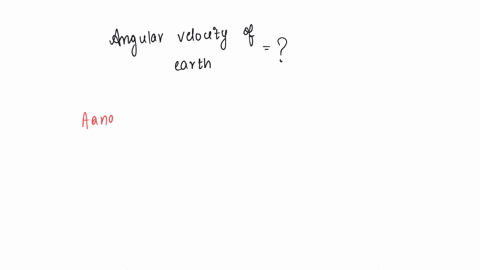 Angular velocity of
earth = ?
Aano